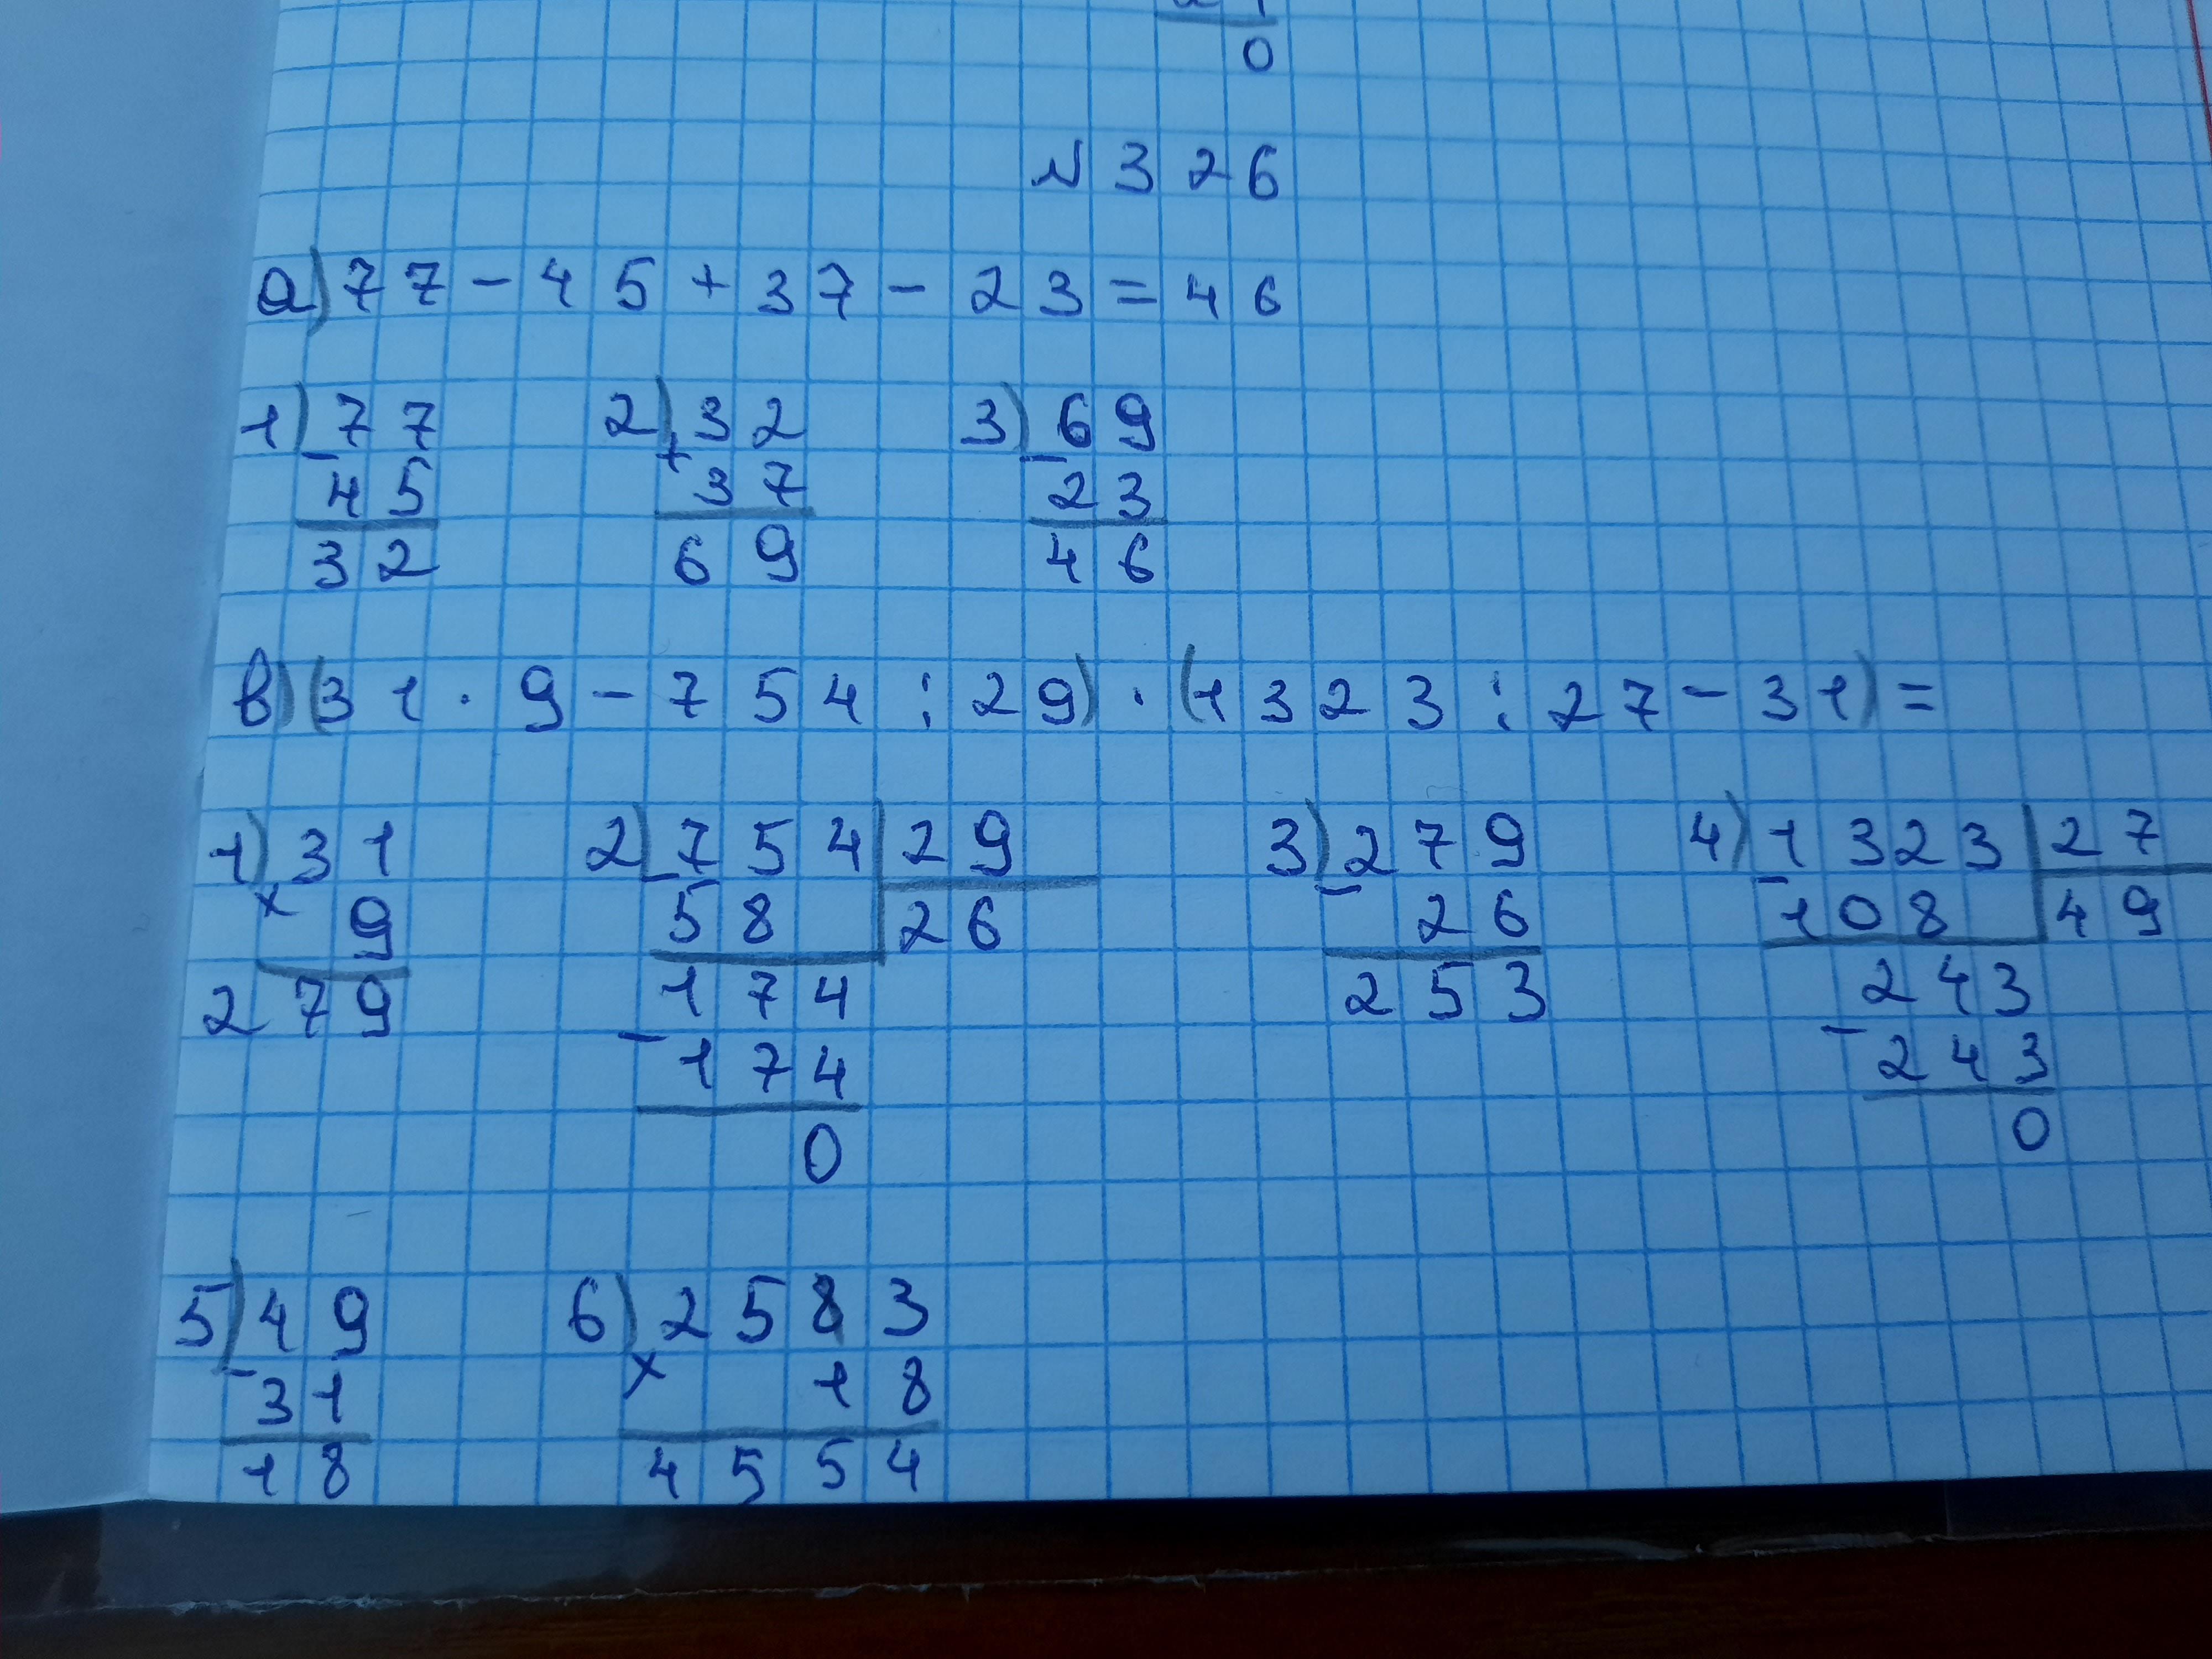 0
№ 326
а) 77 - 45 + 37 - 23 = 46
1) 77 2) 32 3) 69
- 45 + 37 - 23
32 69 46
в) (31 · 9 - 754 : 29) · (1323 : 27 - 31) =
1) 31 2) 754 | 29 3) 279 4) 1323 | 27
× 9 - 58 | 26 - 26 - 108 | 49
279 174 253 243
- 174 - 243
0 0
5) 49 6) 2583
- 31 × 18
18 4554